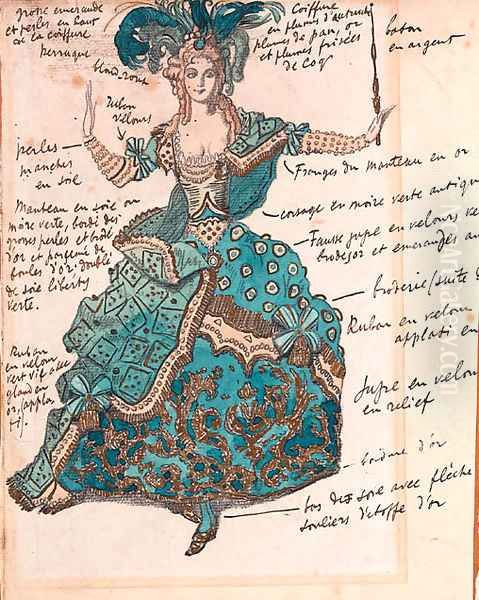 grosse emeraude
et perles en haut
de la coiffure
perruque
blond roux
Coiffure
en plumes d'autruche
plumes de paon, or
et plumes frisées
de coq
baton
en argent
Ruban
velours
perles
manches
en soie
Franges du manteau en or
corsage en moire verte antiqu
Fausse jupe en velours ve
brodée or et emeraudes
Manteau en soie ou
moire verte, bordé des
grosses perles et brodé
d'or et parsemé de
boules d'or doublé
de soie liberty
verte.
broderie (suite
Ruban en velou
appliqué en
Ruban
en velours
vert vif avec
gland en
or,
Jupe en velou
en relief
bordure d'or
bas de soie avec flèche
souliers d'etoffe d'or